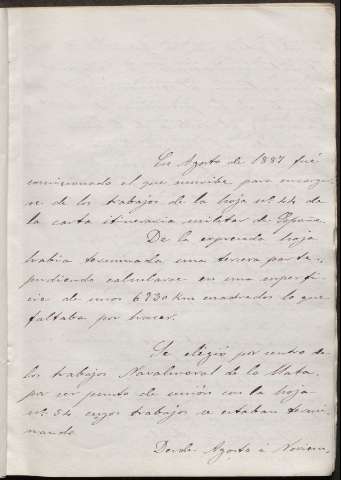 En Agosto de 1887 fué
comisionado el que suscribe para encargar-
se de los trabajos de la hoja nº 44 de
la carta itineraria militar de España.
De la expresada hoja
habia terminada una tercera parte,
pudiendo calcularse en una superfi-
cie de unos 6230 Km cuadrados lo que
faltaba por hacer.
Se eligió por centro de
los trabajos Navalmoral de la Mata,
por ser punto de unión con la hoja
nº. 54 cuyos trabajos se estaban termi-
nando.
Desde Agosto á Noviem-